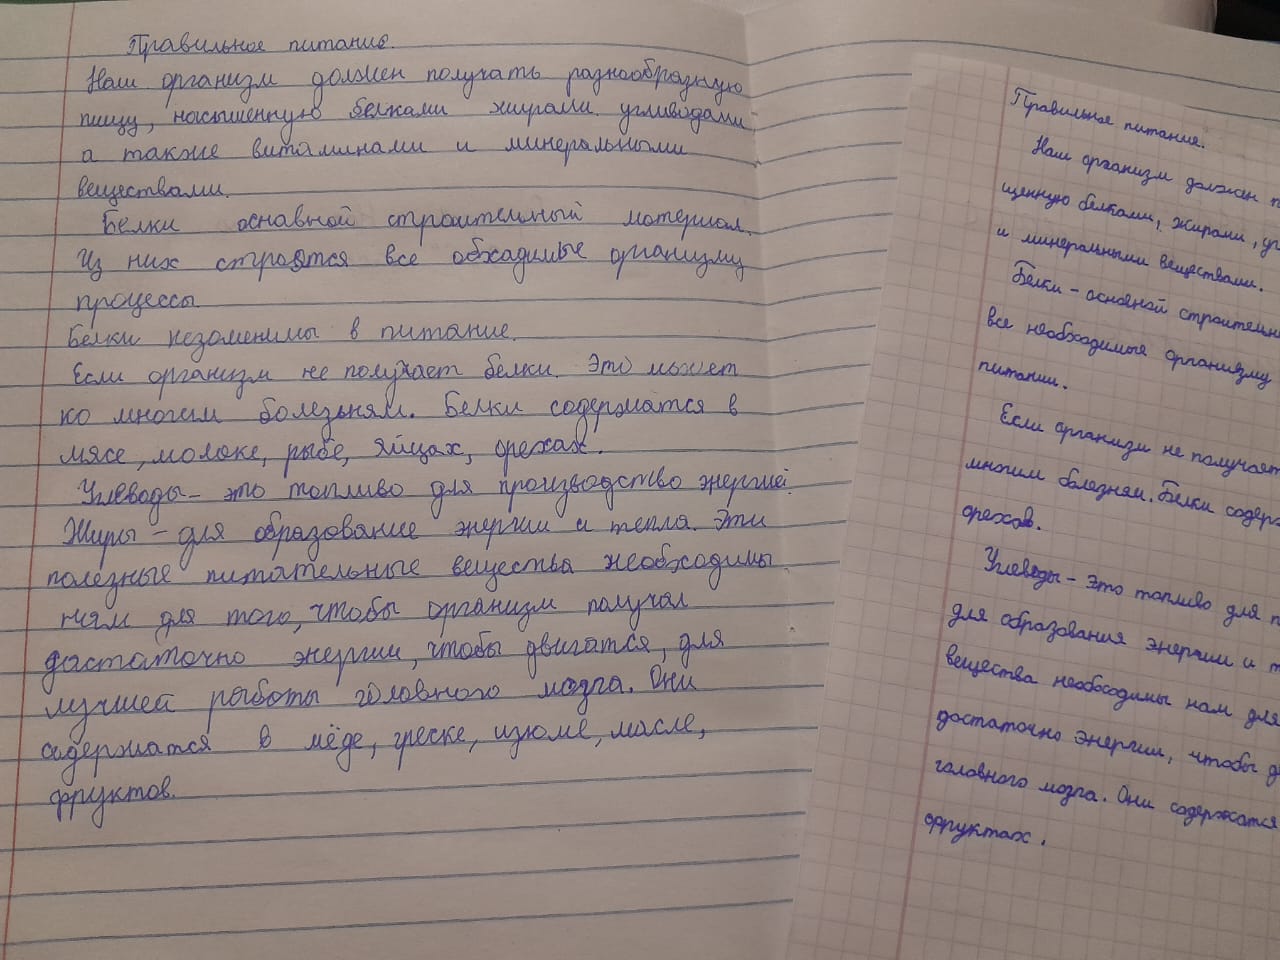 Правильное питание.
Наш организм должен получать разнообразную
пищу, насыщенную белками жирами угливодами
а также витаминами и минеральными
веществами.
Белки основной строителный материал.
Из них строятся все обходимые организму
процессы
Белки незаменимы в питание.
Если организм не получает белки. Это может
ко многим болезьням. Белки содержатся в
мясе, молоке, рыбе, яйцах, орехах.
Углеводы - это топливо для производство энергией.
Жиры - для образование энергии и тепла. Эти
полезные питательные вещества необходимы
нам для того, чтобы организм получал
достаточно энергии, чтобы двигатся, для
лучшей работы головного мозга. Они
содержатся в мёде, греске, изюме, масле,
фруктов.
Правильное питание.
Наш организм должен п
щенную белками, жирами, уг
и минеральными веществами.
Белки - основной строительн
все необходимые организму
питании.
Если организм не получает
многим болезням. Белки содерж
орехов.
Углеводы - это топливо для п
для образования энергии и т
вещества необходимы нам для
достаточно энергии, чтобы д
головного мозга. Они содержатся
фруктах.